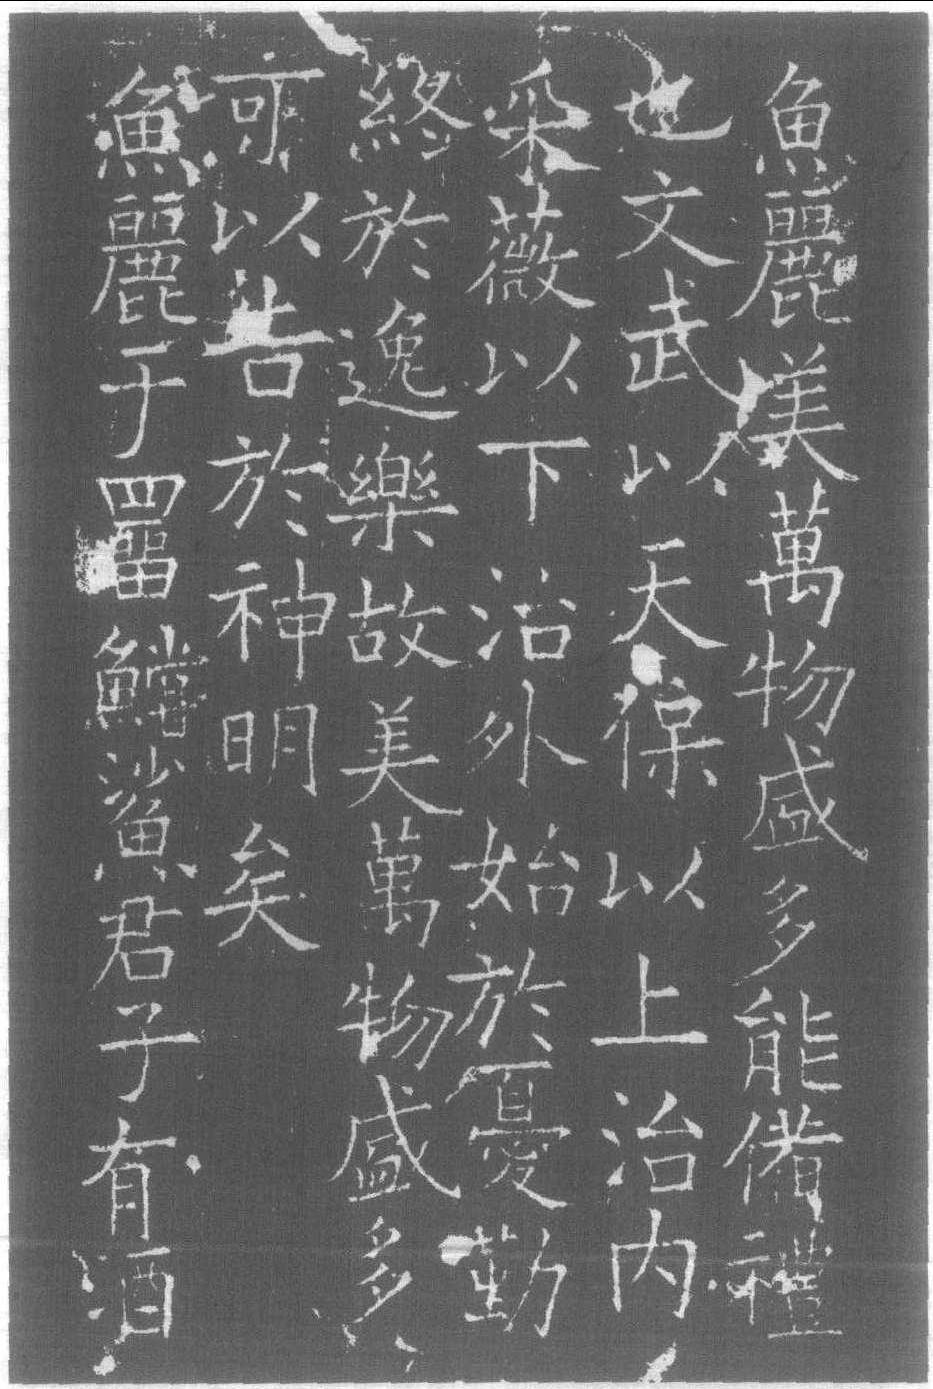 魚麗媄萬物盛多能備禮
也文武以天保以上治内
采薇以下治外始於憂勤
終於逸樂故美萬物盛多
可以告於神明矣
魚麗于罶鱨鯊君子有酒